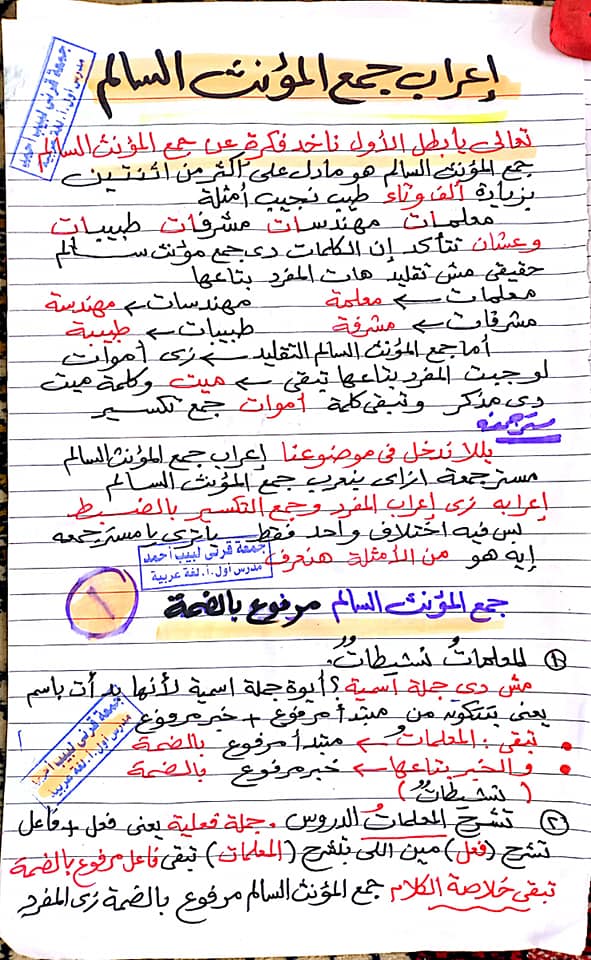 إعراب جمع المؤنث السالم
جمعة قرنى لبيب احمد
مدرس اول.أ.لغة عربية
تعالى يا بطل الأول ناخد فكرة عن جمع المؤنث السالم
جمع المؤنث السالم هو مادل على أكثر من اثنتين
بزيادة ألف وتاء طيب نجيب أمثلة
معلمات مهندسات مشرفات طبيبات
وعشان نتأكد إن الكلمات دى جمع مؤنث سالم
حقيقى مش تقليد هات المفرد بتاعها
معلمات ← معلمة مهندسات ← مهندسة
مشرفات ← مشرفة طبيبات ← طبيبة
أما جمع المؤنث السالم التقليد ← زى أموات
لو جبت المفرد بتاعها تبقى ← ميت وكلمة ميت
دى مذكر وتبقى كلمة أموات جمع تكسير
مستر جمعه
يللا ندخل فى موضوعنا إعراب جمع المؤنث السالم
مستر جمعة ازاى بنعرب جمع المؤنث السالم
إعرابه زى إعراب المفرد وجمع التكسير بالضبط
بس فيه اختلاف واحد فقط ياترى يا مستر جمعه
إيه هو من الأمثلة هنعرف
جمعة قرنى لبيب احمد
مدرس اول.أ.لغة عربية
١ جمع المؤنث السالم مرفوع بالضمة
١) المعلماتُ نشيطاتٌ.
مش دى جملة اسمية؟ أيوة جملة اسمية لأنها بدأت باسم
يعنى بتتكون من مبتدأ مرفوع + خبر مرفوع
• تبقى: المعلماتُ ← مبتدأ مرفوع بالضمة
• والخبر بتاعها ← خبر مرفوع بالضمة
(نشيطاتٌ)
جمعة قرنى لبيب احمد
مدرس اول.أ.لغة عربية
٢) تشرح المعلماتُ الدروس. جملة فعلية يعنى فعل + فاعل
تشرح (فعل) مين اللى بتشرح (المعلمات) تبقى فاعل مرفوع بالضمة
تبقى خلاصة الكلام جمع المؤنث السالم مرفوع بالضمة زى المفرد